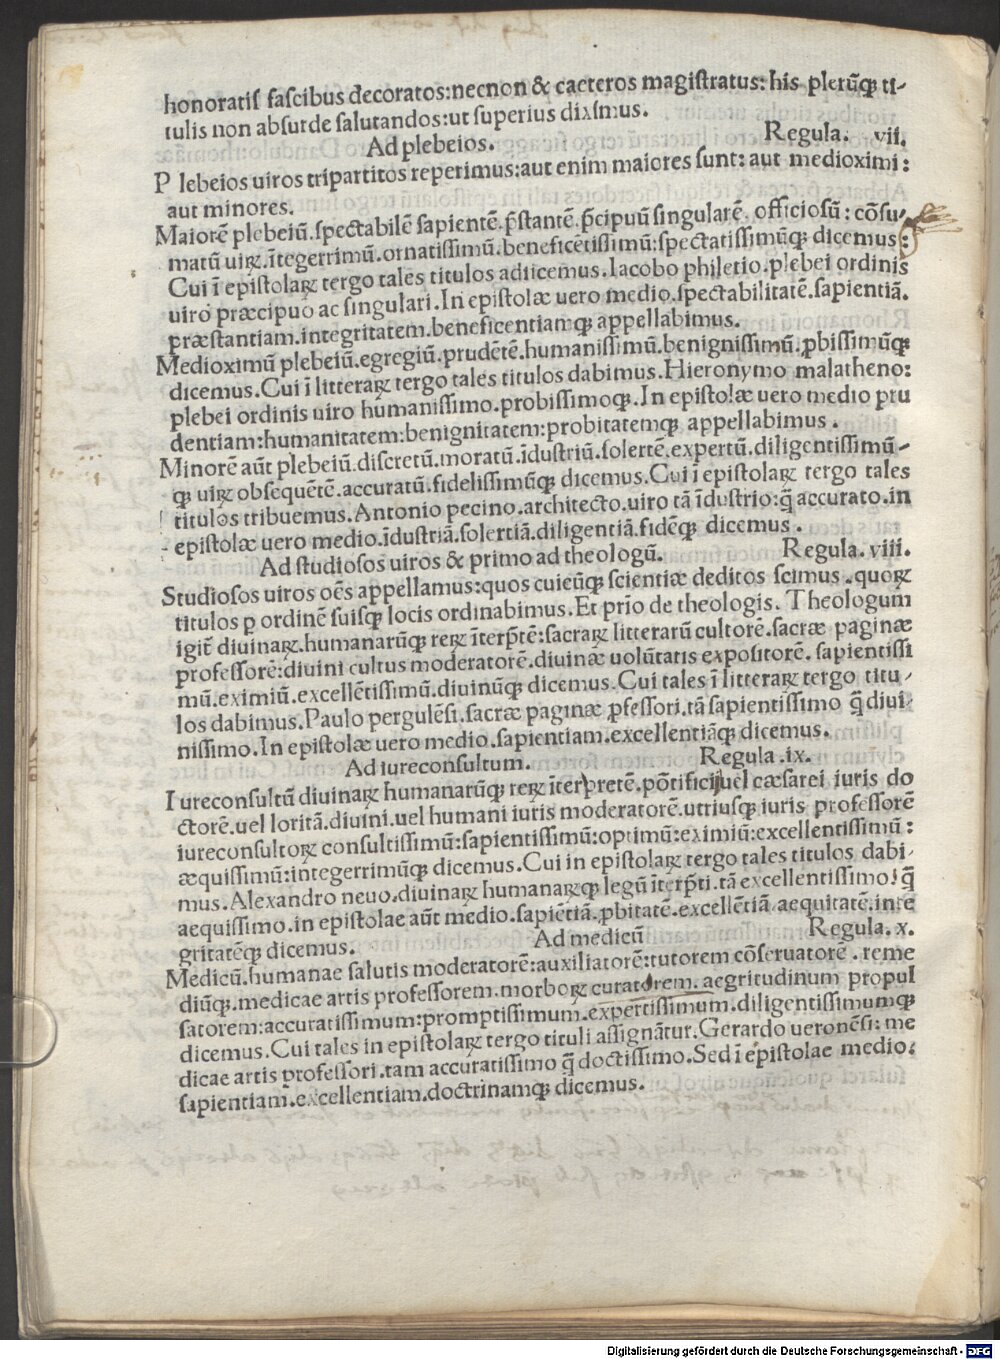 honoratiſ faſcibus decoratos:necnon & caeteros magiſtratus: his plerūqꝫ ti-
tulis non abſurde ſalutandos:ut ſuperius diximus.
Ad plebeios. Regula. vii.
P lebeios uiros tripartitos reperimus:aut enim maiores ſunt: aut medioximi:
aut minores.
Maiorē plebeiū.ſpectabilē ſapientē.p̄ſtantē.p̄cipuū ſingularē. officioſū: cōſu-
matū uirꝝ.ītegerrimū.ornatiſſimū.beneficētiſſimū:ſpectatiſſimūqꝫ dicemus:
Cui ī epiſtolaꝝ tergo tales titulos adiicemus. Iacobo philetio.plebei ordinis
uiro præcipuo ac ſingulari.In epiſtolæ uero medio.ſpectabilitatē.ſapientiā.
præſtantiam.integritatem.beneficentiamqꝫ appellabimus.
Medioximū plebeiū.egregiū.prudētē.humaniſſimū.benigniſſimū.ꝓbiſſimūqꝫ
dicemus.Cui ī litteraꝝ tergo tales titulos dabimus.Hieronymo malatheno:
plebei ordinis uiro humaniſſimo.probiſſimoqꝫ.In epiſtolæ uero medio pru
dentiam:humanitatem:benignitatem:probitatemqꝫ appellabimus.
Minorē aūt plebeiū.diſcretū.moratū.īduſtriū.ſolertē.expertū.diligentiſſimū-
qꝫ uirꝝ obſequētē.accuratū.fideliſſimūqꝫ dicemus.Cui ī epiſtolaꝝ tergo tales
titulos tribuemus.Antonio pecino.architecto.uiro tā īduſtrio:q̄ accurato.in
epiſtolæ uero medio.īduſtriā.ſolertiā.diligentiā.fidēqꝫ dicemus.
Ad ſtudioſos uiros & primo ad theologū. Regula.viii.
Studioſos uiros oēs appellamus:quos cuicūqꝫ ſcientiæ deditos ſcimus.quoꝝ
titulos ꝑ ordinē ſuiſqꝫ locis ordinabimus.Et prīo de theologis. Theologum
igit̄ diuinaꝝ.humanarūqꝫ reꝝ īterp̄tē:ſacraꝝ litterarū cultorē.ſacræ paginæ
profeſſorē:diuini cultus moderatorē.diuinæ uolūtatis expoſitorē. ſapientiſſi
mū.eximiū.excellētiſſimū.diuinūqꝫ dicemus.Cui tales ī litteraꝝ tergo titu-
los dabimus.Paulo pergulēſi.ſacræ paginæ ꝓfeſſori.tā ſapientiſſimo q̄ diui
niſſimo.In epiſtolæ uero medio.ſapientiam.excellentiāqꝫ dicemus.
Ad iureconſultum. Regula.ix.
I ureconſultū diuinaꝝ humanarūqꝫ reꝝ īterpretē.pōtificij uel cæſarei iuris do
ctorē.uel loritā.diuini.uel humani iuris moderatorē.utriuſqꝫ iuris profeſſorē
iureconſultoꝝ conſultiſſimū:ſapientiſſimū:optimū:eximiū:excellentiſſimū:
æquiſſimū:integerrimūqꝫ dicemus.Cui in epiſtolaꝝ tergo tales titulos dabi-
mus.Alexandro neuo.diuinaꝝ humanaꝝqꝫ legū īterp̄ti.tā excellentiſſimo! q̄
aequiſſimo.in epiſtolae aūt medio.ſapiētiā.ꝓbitatē.excellētiā aequitatē.inte
gritatēqꝫ dicemus. Ad medicū Regula.x.
Medicū.humanae ſalutis moderatorē:auxiliatorē:tutorem cōſeruatorē.reme
diūqꝫ.medicae artis profeſſorem.morboꝝ curatorem.aegritudinum propul
ſatorem:accuratiſſimum:promptiſſimum.expertiſſimum.diligentiſſimumqꝫ
dicemus.Cui tales in epiſtolaꝝ tergo tituli aſſignātur.Gerardo ueronēſi: me
dicae artis profeſſori.tam accuratiſſimo q̄ doctiſſimo.Sed ī epiſtolae medio:
ſapientiam.excellentiam.doctrinamqꝫ dicemus.
Digitalisierung gefördert durch die Deutsche Forschungsgemeinschaft - DFG